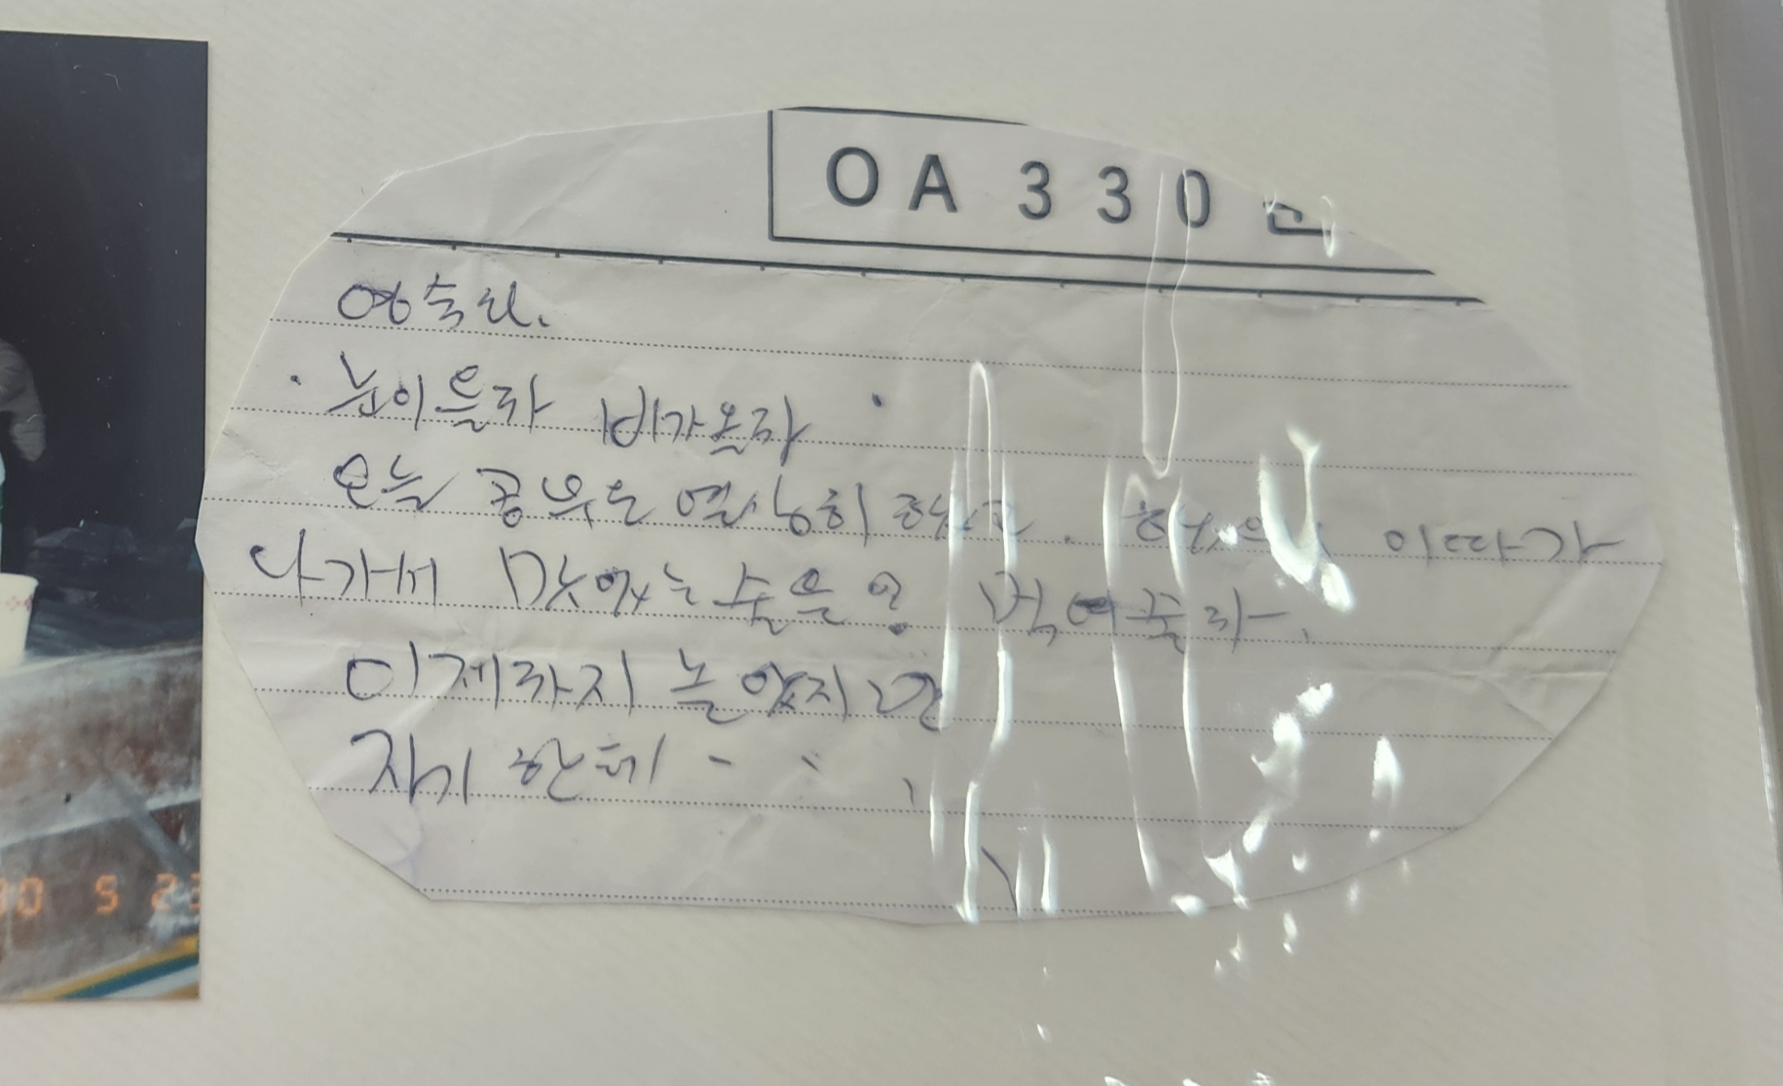 OA 330
눈이올라 비가올라
오늘 공부도 열심히 하였고. 이따가
나가서 맛있는 술을 먹어줄라.
이제까지 놀았지만
자기 한테 - - .
90 5 23